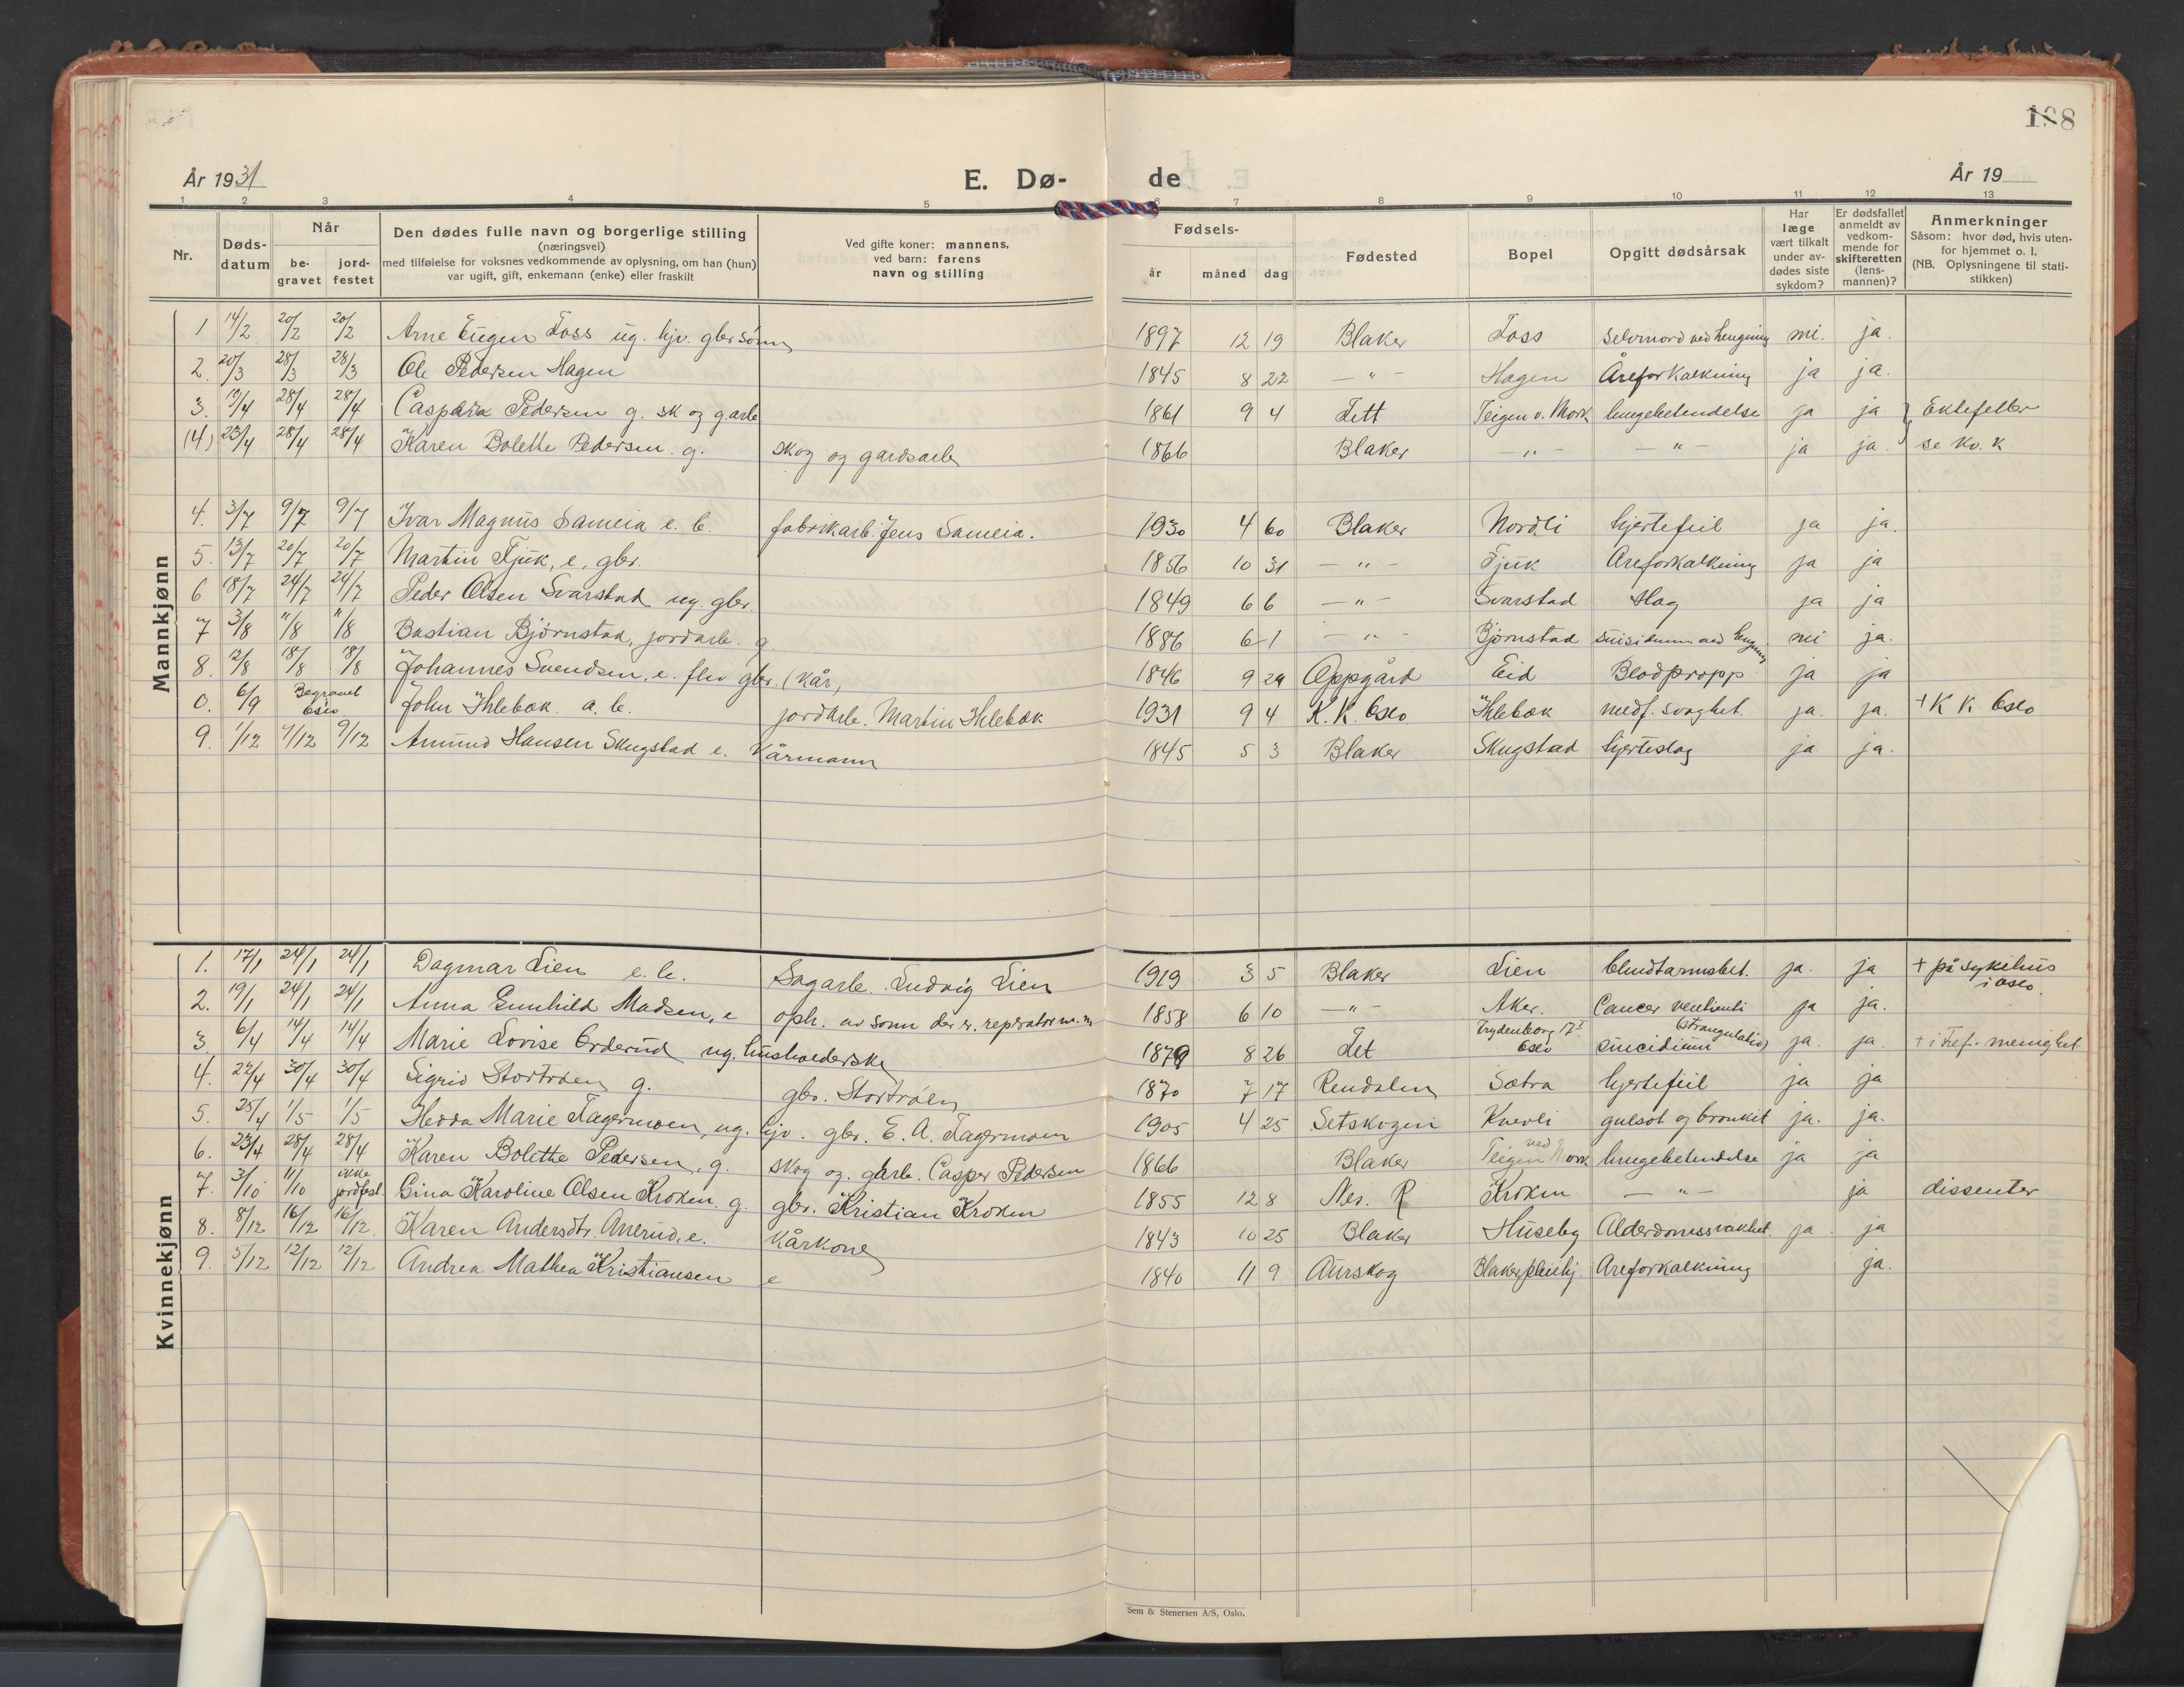 188
År 1931
E. Dø- de
År 19
1 2 3 4 5 6 7 8 9 10 11 12 13
Nr.
Døds-
datum
Når
be-
gravet
jord-
festet
Den dødes fulle navn og borgerlige stilling
(næringsvei)
med tilføielse for voksnes vedkommende av oplysning, om han (hun)
var ugift, gift, enkemann (enke) eller fraskilt
Ved gifte koner: mannens,
ved barn: farens
navn og stilling
Fødsels-
år måned dag
Fødested
Bopel
Opgitt dødsårsak
Har
læge
vært tilkalt
under av-
dødes siste
sykdom?
Er dødsfallet
anmeldt av
vedkom-
mende for
skifteretten
(lens-
mannen)?
Anmerkninger
Såsom: hvor død, hvis uten-
for hjemmet o. l.
(NB. Oplysningene til stati-
stikken)
Mannkjønn
1 14/2 20/2 20/2 Arne Eugen Foss ug. hjv. gbr sønn 1897 12 19 Blaker Foss selvmord ved hengning ja.
2. 20/3 28/3 28/3 Ole Pedersen Hagen 1845 8 22 — " — Hagen Åreforkalkning ja ja.
3. 19/4 28/4 28/4 Pedersen g. sk og g.arb 1861 9 4 Fett Teigen v. Mork lungebetendelse ja ja } Ektefeller
(4) 23/4 28/4 28/4 Karen Bolette Pedersen g. skog og gardsarb 1866 Blaker — " — — " — ja ja. se kv. k.
4. 3/7 9/7 9/7 Ivar Magnus Sameia e. b. fabrikarb. Jens Sameia. 1930 4 Blaker Nordli hjertefeil ja ja.
5. 13/7 20/7 20/7 Martin Fjuk, e, gbr. 1856 10 31 — " — Fjuk Åreforkalkning ja ja
6 18/7 24/7 24/7 Peder Olsen Svarstad ug. gbr. 1849 6 6 — " — Svarstad slag ja ja
7 3/8 11/8 11/8 Bastian Bjørnstad, jordarb. g 1886 6 1 — " — Bjørnstad suisidium ved hengning ja.
8. 12/8 18/8 18/8 Johannes Svendsen, e. gbr. (kår, 1846 9 29 Oppgård Eid Blodpropp ja ja
0. 6/9 Begravet Oslo John Ihlebæk. a. b. jordarb. Martin Ihlebæk 1931 9 4 K. K. Oslo Ihlebæk medf. svaghet. ja. ja. + K K Oslo
9. 1/12 9/12 9/12 Amund Hansen Skugstad e. Kårmann 1845 5 3 Blaker Skugstad hjerteslag ja ja.
Kvinnekjønn
1. 17/1 24/1 24/1 Dagmar Lien e. b. Sagarb. Ludvig Lien 1919 3 5 Blaker Lien blindtarmsbet. ja. ja + på sykehus
i Oslo.
2. 19/1 24/1 24/1 Anna Gunhild Madsen, e oph. av sønn der er 1858 6 10 — " — Aker. Cancer ventrikuli ja ja.
3. 6/4 14/4 14/4 Marie Lovise Orderud ug. husholderske 1879 8 26 Fet Oslo suicidium (strangulatio) ja. ja. + i Tref. menighet
4. 22/4 30/4 30/4 Sigrid Stortrøen g. gbr. Stortrøen 1870 7 17 Rendalen Sætra hjertefeil ja ja
5. 25/4 1/5 1/5 Hedda Marie Fagermoen, ug. hjv. gbr. E. A. Fagermoen 1905 4 25 Setskogen Knevli gulsot og bronkit ja. ja.
6. 23/4 28/4 28/4 Karen Bolette Pedersen, g. skog og. garb. Casper Pedersen 1866 Blaker Teigen ved Mork lungebetendelse ja ja
7. 3/10 11/10 ikke jordfest. Gina Karoline Olsen Kroken. g. gbr. Kristian Kroken 1855 12 8 Nes. R Kroken — " — ja dissenter
8. 8/12 16/12 16/12 Karen Andersdtr. Anerud, e. Kårkone 1843 10 25 Blaker Huseby Alderdomssvakhet. ja. ja
9. 5/12 12/12 12/12 Andrea Mathea Kristiansen e 1840 11 9 Aurskog Blaker pleiehj. Åreforkalkning ja.
Sem & Stenersen A/S, Oslo.